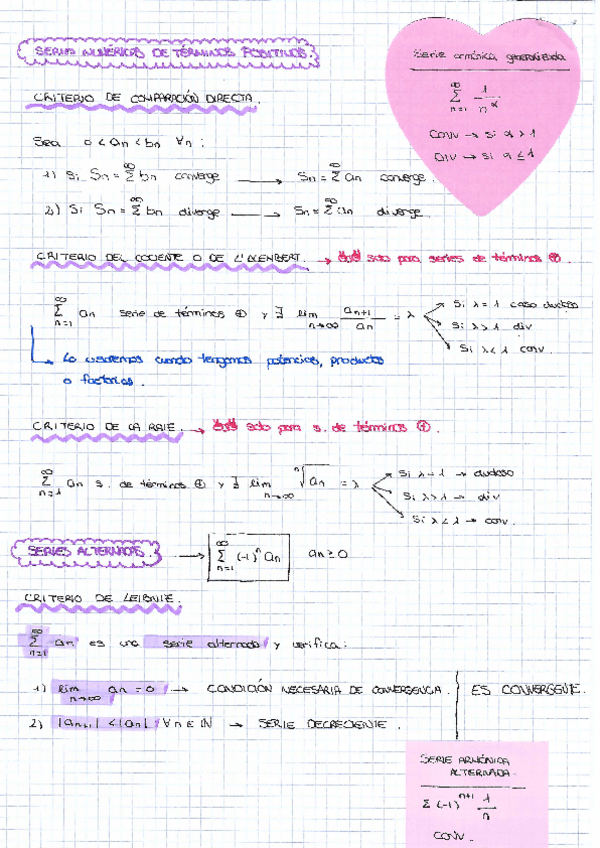 SERIES NUMÉRICAS DE TÉRMINOS POSITIVOS.
Serie armónica generalizada
∞
Σ 1/n^α
n=1
CONV → si α > 1
DIV → si α ≤ 1
CRITERIO DE COMPARACIÓN DIRECTA.
Sea 0 < an < bn ∀n :
1) Si Sn = Σ^∞ bn converge → Sn = Σ^∞ an converge.
2) Si Sn = Σ^∞ bn diverge → Sn = Σ^∞ an diverge.
CRITERIO DEL COCIENTE O DE L'ALEMBERT. → solo para series de términos ⊕.
∞
Σ an serie de términos ⊕ y ∃ lim an+1/an = λ
n=1 n→∞
Si λ = 1 caso dudoso
Si λ > 1 div
Si λ < 1 conv.
Lo usaremos cuando tengamos potencias, productos
o factorias.
CRITERIO DE LA RAIZ. → solo para s. de términos ⊕.
∞
Σ an s. de términos ⊕ y ∃ lim ⁿ√an = λ
n=1 n→∞
Si λ = 1 → dudoso
Si λ > 1 → div
Si λ < 1 → conv.
SERIES ALTERNADAS. → Σ^∞ n=1 (-1)^n an an ≥ 0
CRITERIO DE LEIBNIZ.
∞
Σ an es una serie alternada y verifica:
n=1
1) lim an = 0 → CONDICIÓN NECESARIA DE CONVERGENCIA.
n→∞
2) |an+1| < |an| ∀n ∈ ℕ → SERIE DECRECIENTE.
ES CONVERGENTE.
SERIE ARMÓNICA
ALTERNADA.
Σ (-1)^n+1 1/n
CONV.